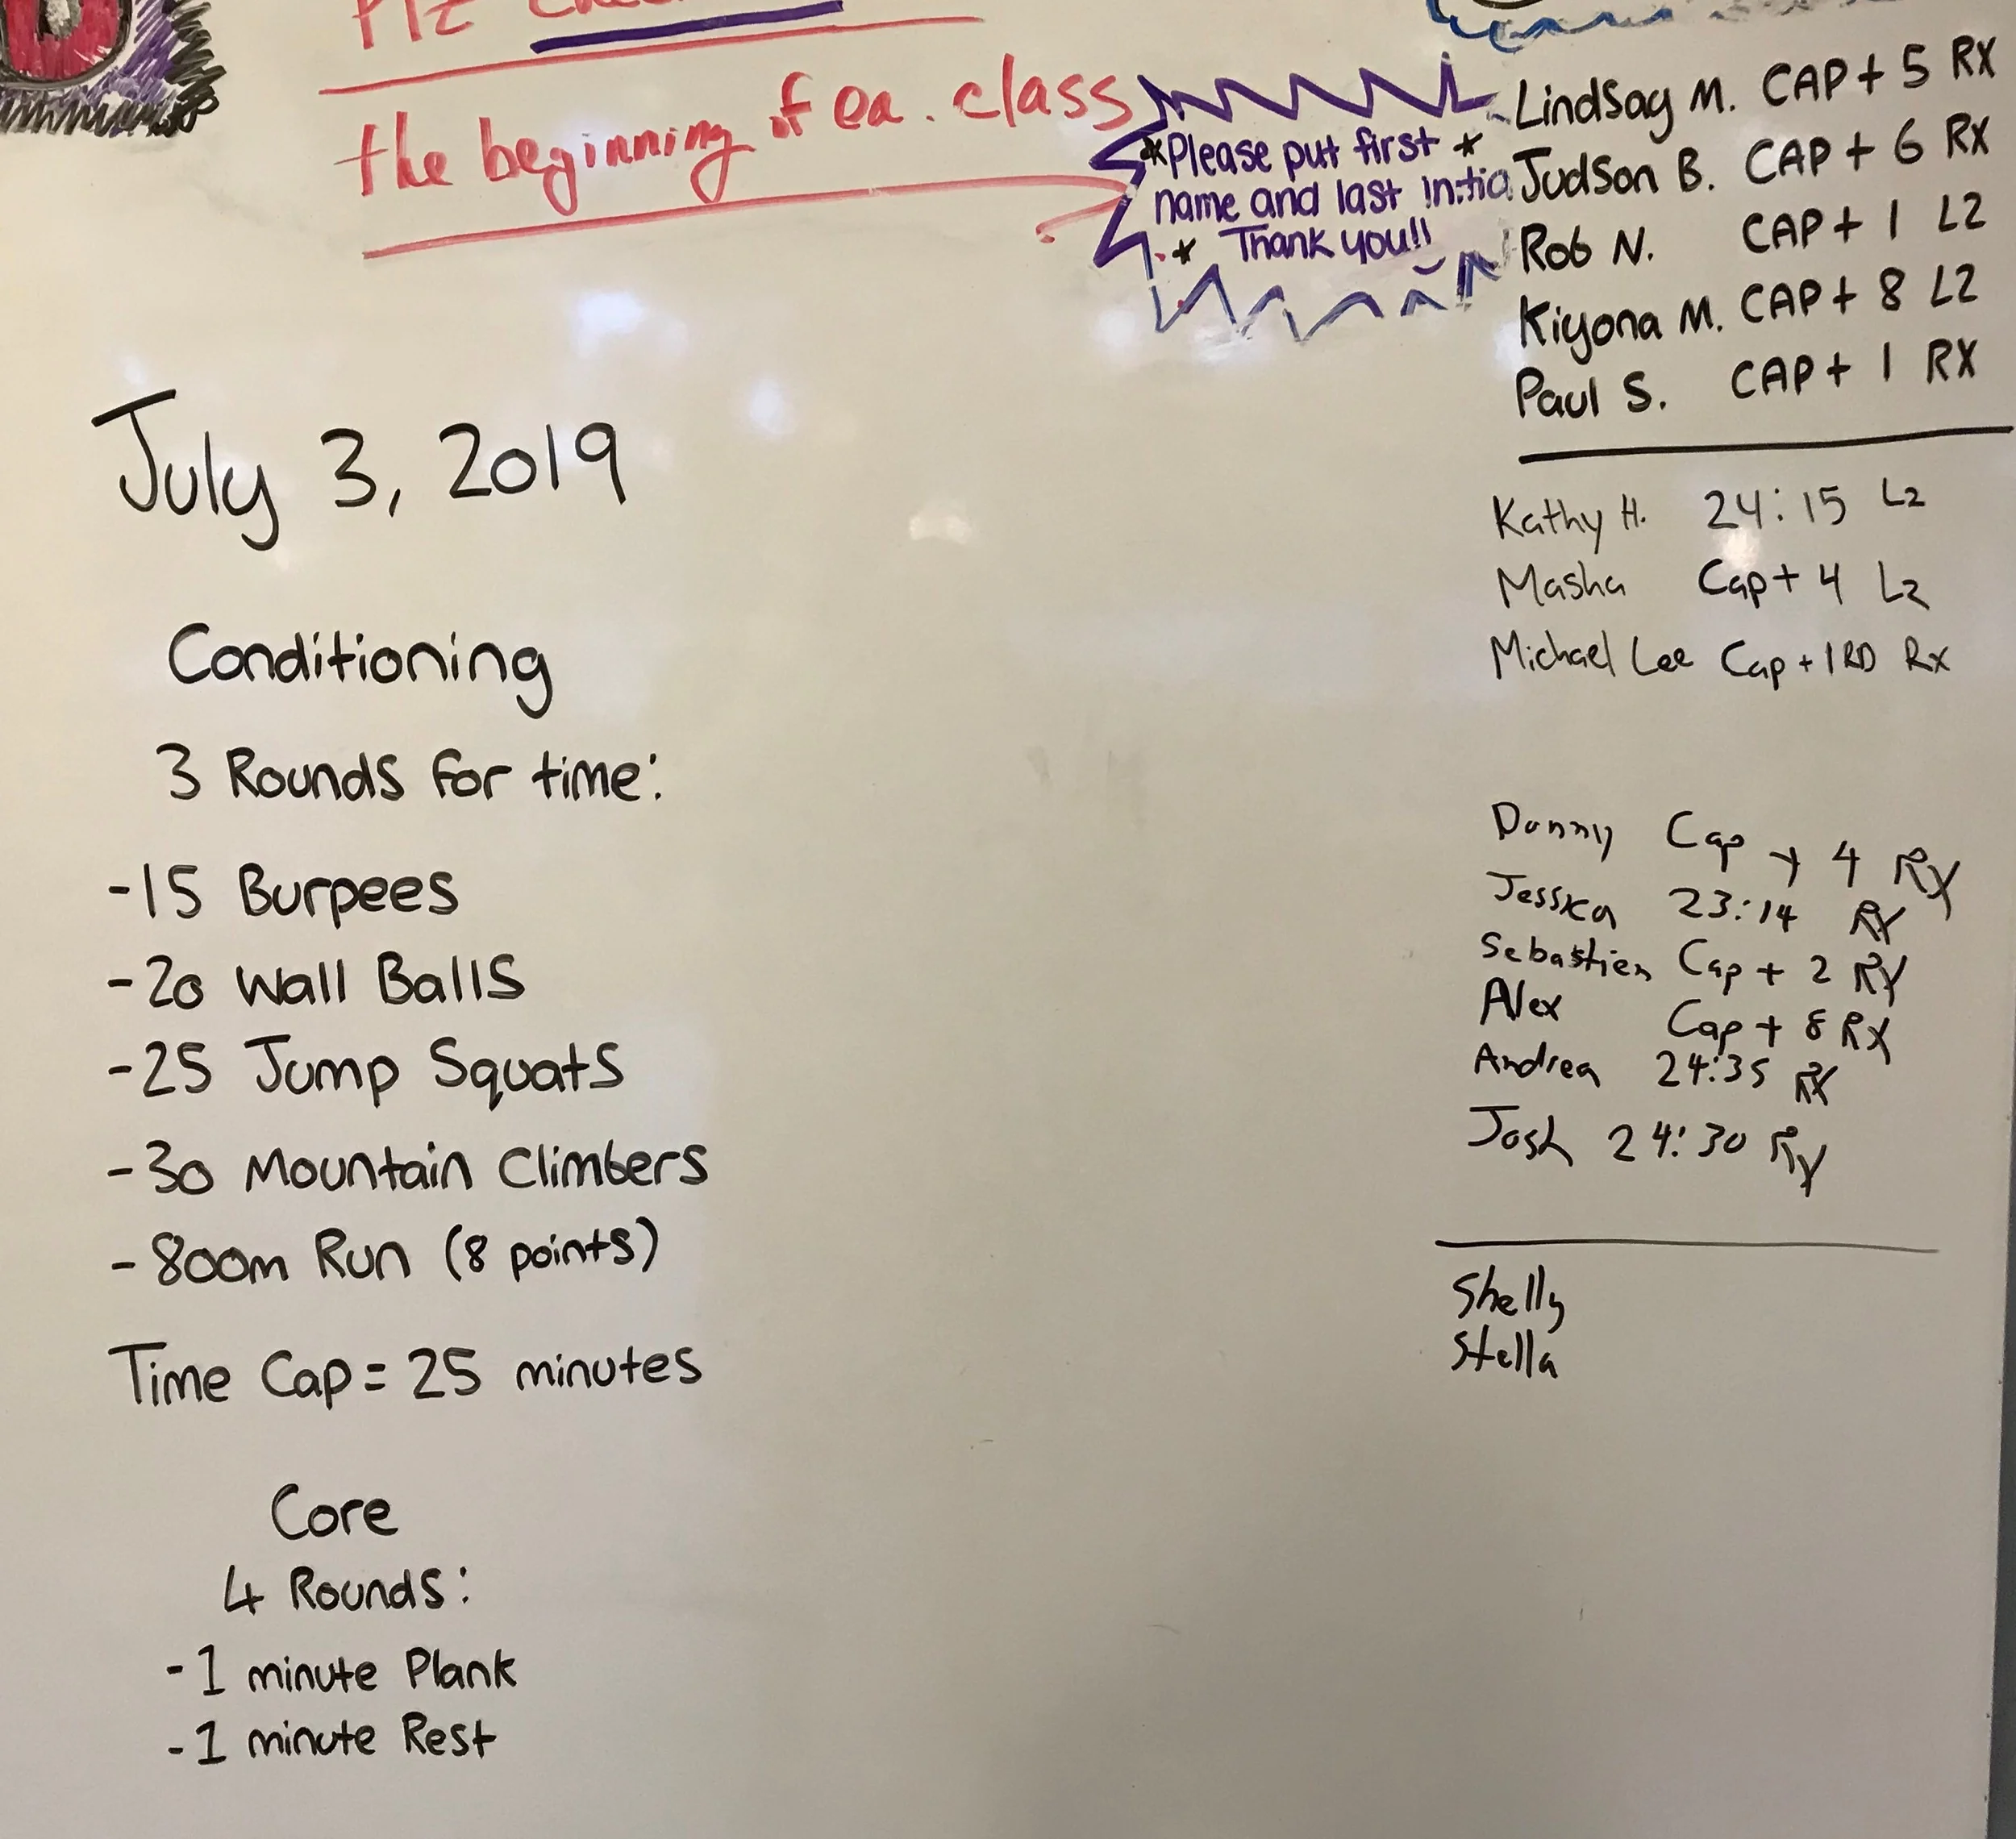 Plz
the beginning of ea. class
*Please put first *
name and last initia
* Thank you!!
Lindsay M. CAP + 5 RX
Judson B. CAP + 6 RX
Rob N. CAP + 1 L2
Kiyona M. CAP + 8 L2
Paul S. CAP + 1 RX
Kathy H. 24:15 L2
Masha Cap + 4 L2
Michael Lee Cap + 1 RD Rx
Danny Cap + 4 RX
Jessica 23:14 RX
Sebastien Cap + 2 RX
Alex Cap + 8 RX
Andrea 24:35 RX
Josh 24:30 RX
Shelly
Stella
July 3, 2019
Conditioning
3 Rounds for time:
-15 Burpees
-20 Wall Balls
-25 Jump Squats
-30 Mountain Climbers
-800m Run (8 points)
Time Cap = 25 minutes
Core
4 Rounds:
-1 minute Plank
-1 minute Rest